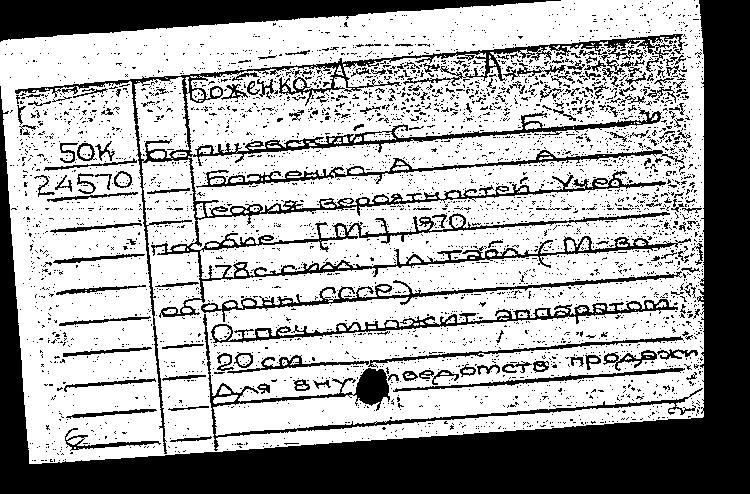 Боженко, А А
50К Борщевский, С Б и
24570 Боженко, А А
Теория вероятностей. Учеб.
пособие. [М.], 1970.
178 с. с илл.; 1 л. табл. (М-во
обороны СССР).
Отпеч. множит. аппаратом
20 см.
Для внут ведомств. продажи